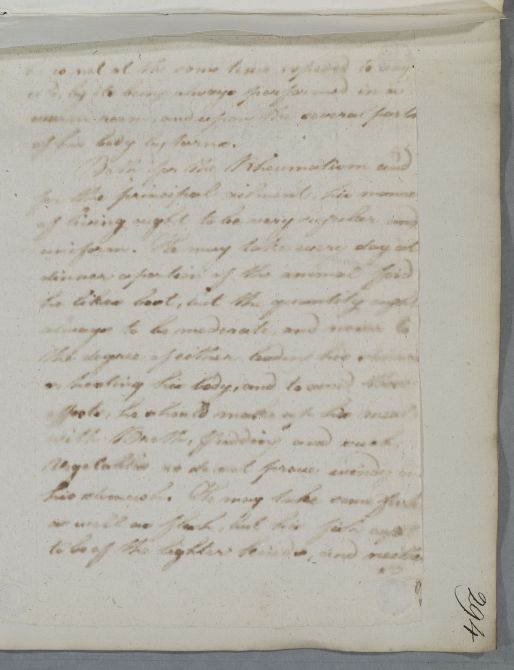 is not at the same time exposed to any
cold, by its being always performed in a
warm room, and upon the several parts
of his body by turns.
Both for the Rheumatism and
for the principal ailment, his manner
of living ought to be very regular and
uniform. He may take every day at
dinner a portion of the animal food
he likes best, but the quantity ought
always to be moderate, and never to
the degree of either loading his stomach
or heating his body, and to avoid these
effects, he should make up his meal
with Broth, pudding and such
Vegetables as do not prove windy on
his stomach. He may take some fish
as well as flesh, but his fish ought
to be of the lighter kinds, and neither
294